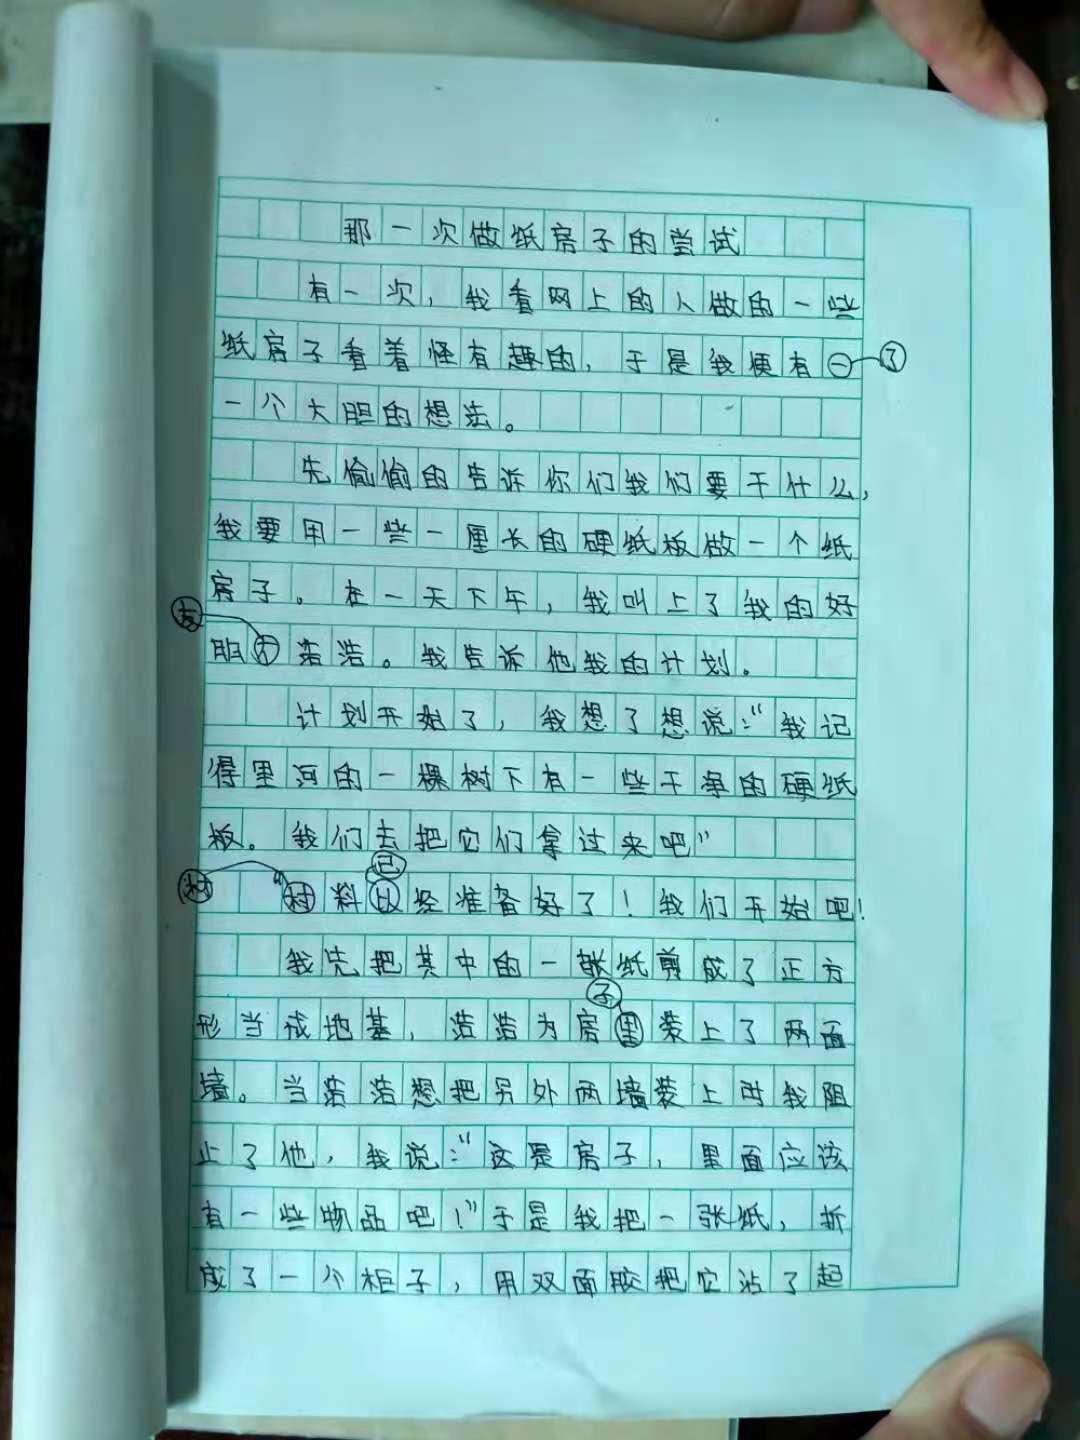 那一次做纸房子的尝试
有一次，我看网上的人做的一些
纸房子看着怪有趣的，于是我便有一了
一个大胆的想法。
先偷偷的告诉你们我们要干什么，
我要用一些一厘长的硬纸板做一个纸
房子。在一天下午，我叫上了我的好
友
朋浩浩。我告诉他我的计划。
计划开始了，我想了想说：“我记
得里河的一棵树下有一些干净的硬纸
板。我们去把它们拿过来吧”
已
材“材料以经准备好了！我们开始吧！
我先把其中的一张纸剪成了正方
子
形当成地基，浩浩为房里装上了两面
墙。当浩浩想把另外两墙装上时我阻
止了他，我说：“这是房子，里面应该
有一些物品吧！”于是我把一张纸，折
成了一个柜子，用双面胶把它沾了起